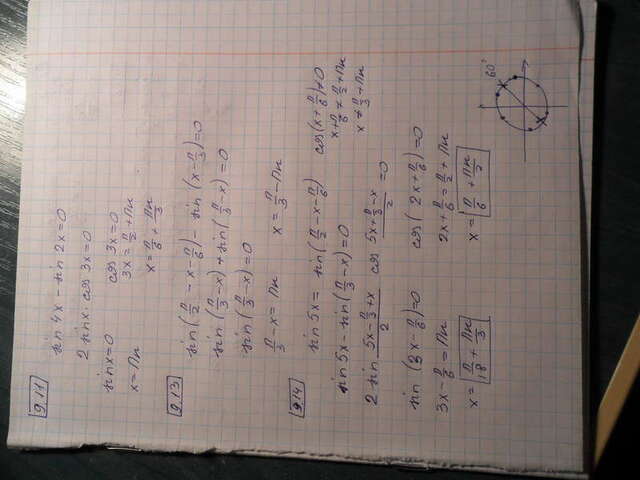 9.11
sin 4x - sin 2x = 0
2 sin x · cos 3x = 0
sin x = 0 cos 3x = 0
x = πк 3x = π/2 + πк
x = π/6 + πк/3
9.13
sin(π/2 - x - π/6) - sin(x - π/3) = 0
sin(π/3 - x) + sin(π/3 - x) = 0
sin(π/3 - x) = 0
π/3 - x = πк x = π/3 - πк
9.14
sin 5x = sin(π/2 - x - π/6) cos(x + π/6) ≠ 0
sin 5x - sin(π/3 - x) = 0 x + π/6 ≠ π/2 + πк
x ≠ π/3 + πк
2 sin (5x - π/3 + x)/2 cos (5x + π/3 - x)/2 = 0
sin(3x - π/6) = 0 cos(2x + π/6) = 0
3x - π/6 = πк 2x + π/6 = π/2 + πк
x = π/18 + πк/3 x = π/6 + πк/2
60°